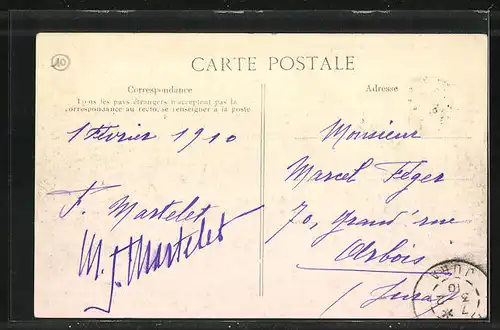 10
CARTE POSTALE
Correspondance
Tous les pays étrangers n'acceptent pas la
correspondance au recto, se renseigner à la poste
Adresse
1 Février 1910
F. Martelet
M. J. Martelet
Monsieur
Marcel Féger
70, grand'rue
Arbois
(Jura)
JURA